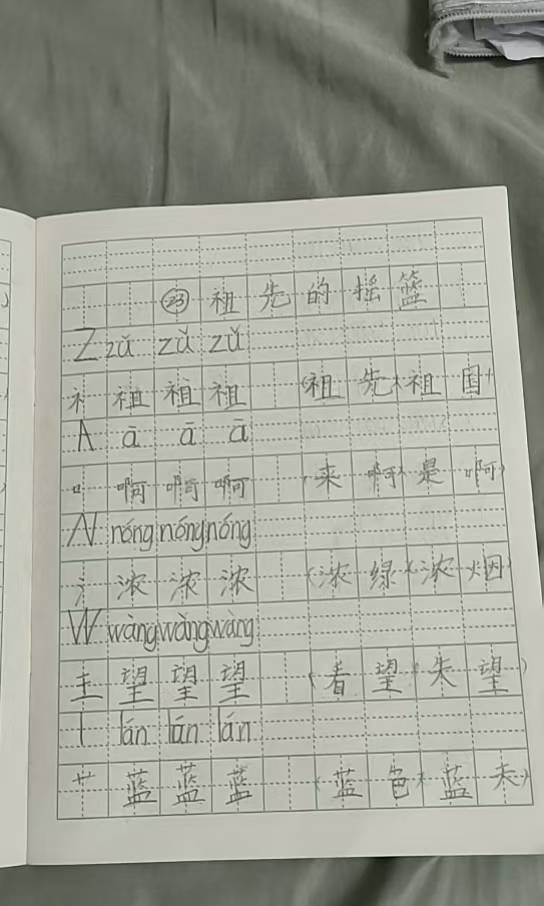 ㉓ 祖先的摇篮
Z zǔ zǔ zǔ
礻 祖 祖 祖 (祖先)(祖国)
A ā ā ā
口 啊 啊 啊 (来啊)(是啊)
N nóng nóng nóng
氵 浓 浓 浓 (浓绿)(浓烟)
W wàng wàng wàng
王 望 望 望 (看望)(失望)
l lán lán lán
艹 蓝 蓝 蓝 (蓝色)(蓝天)